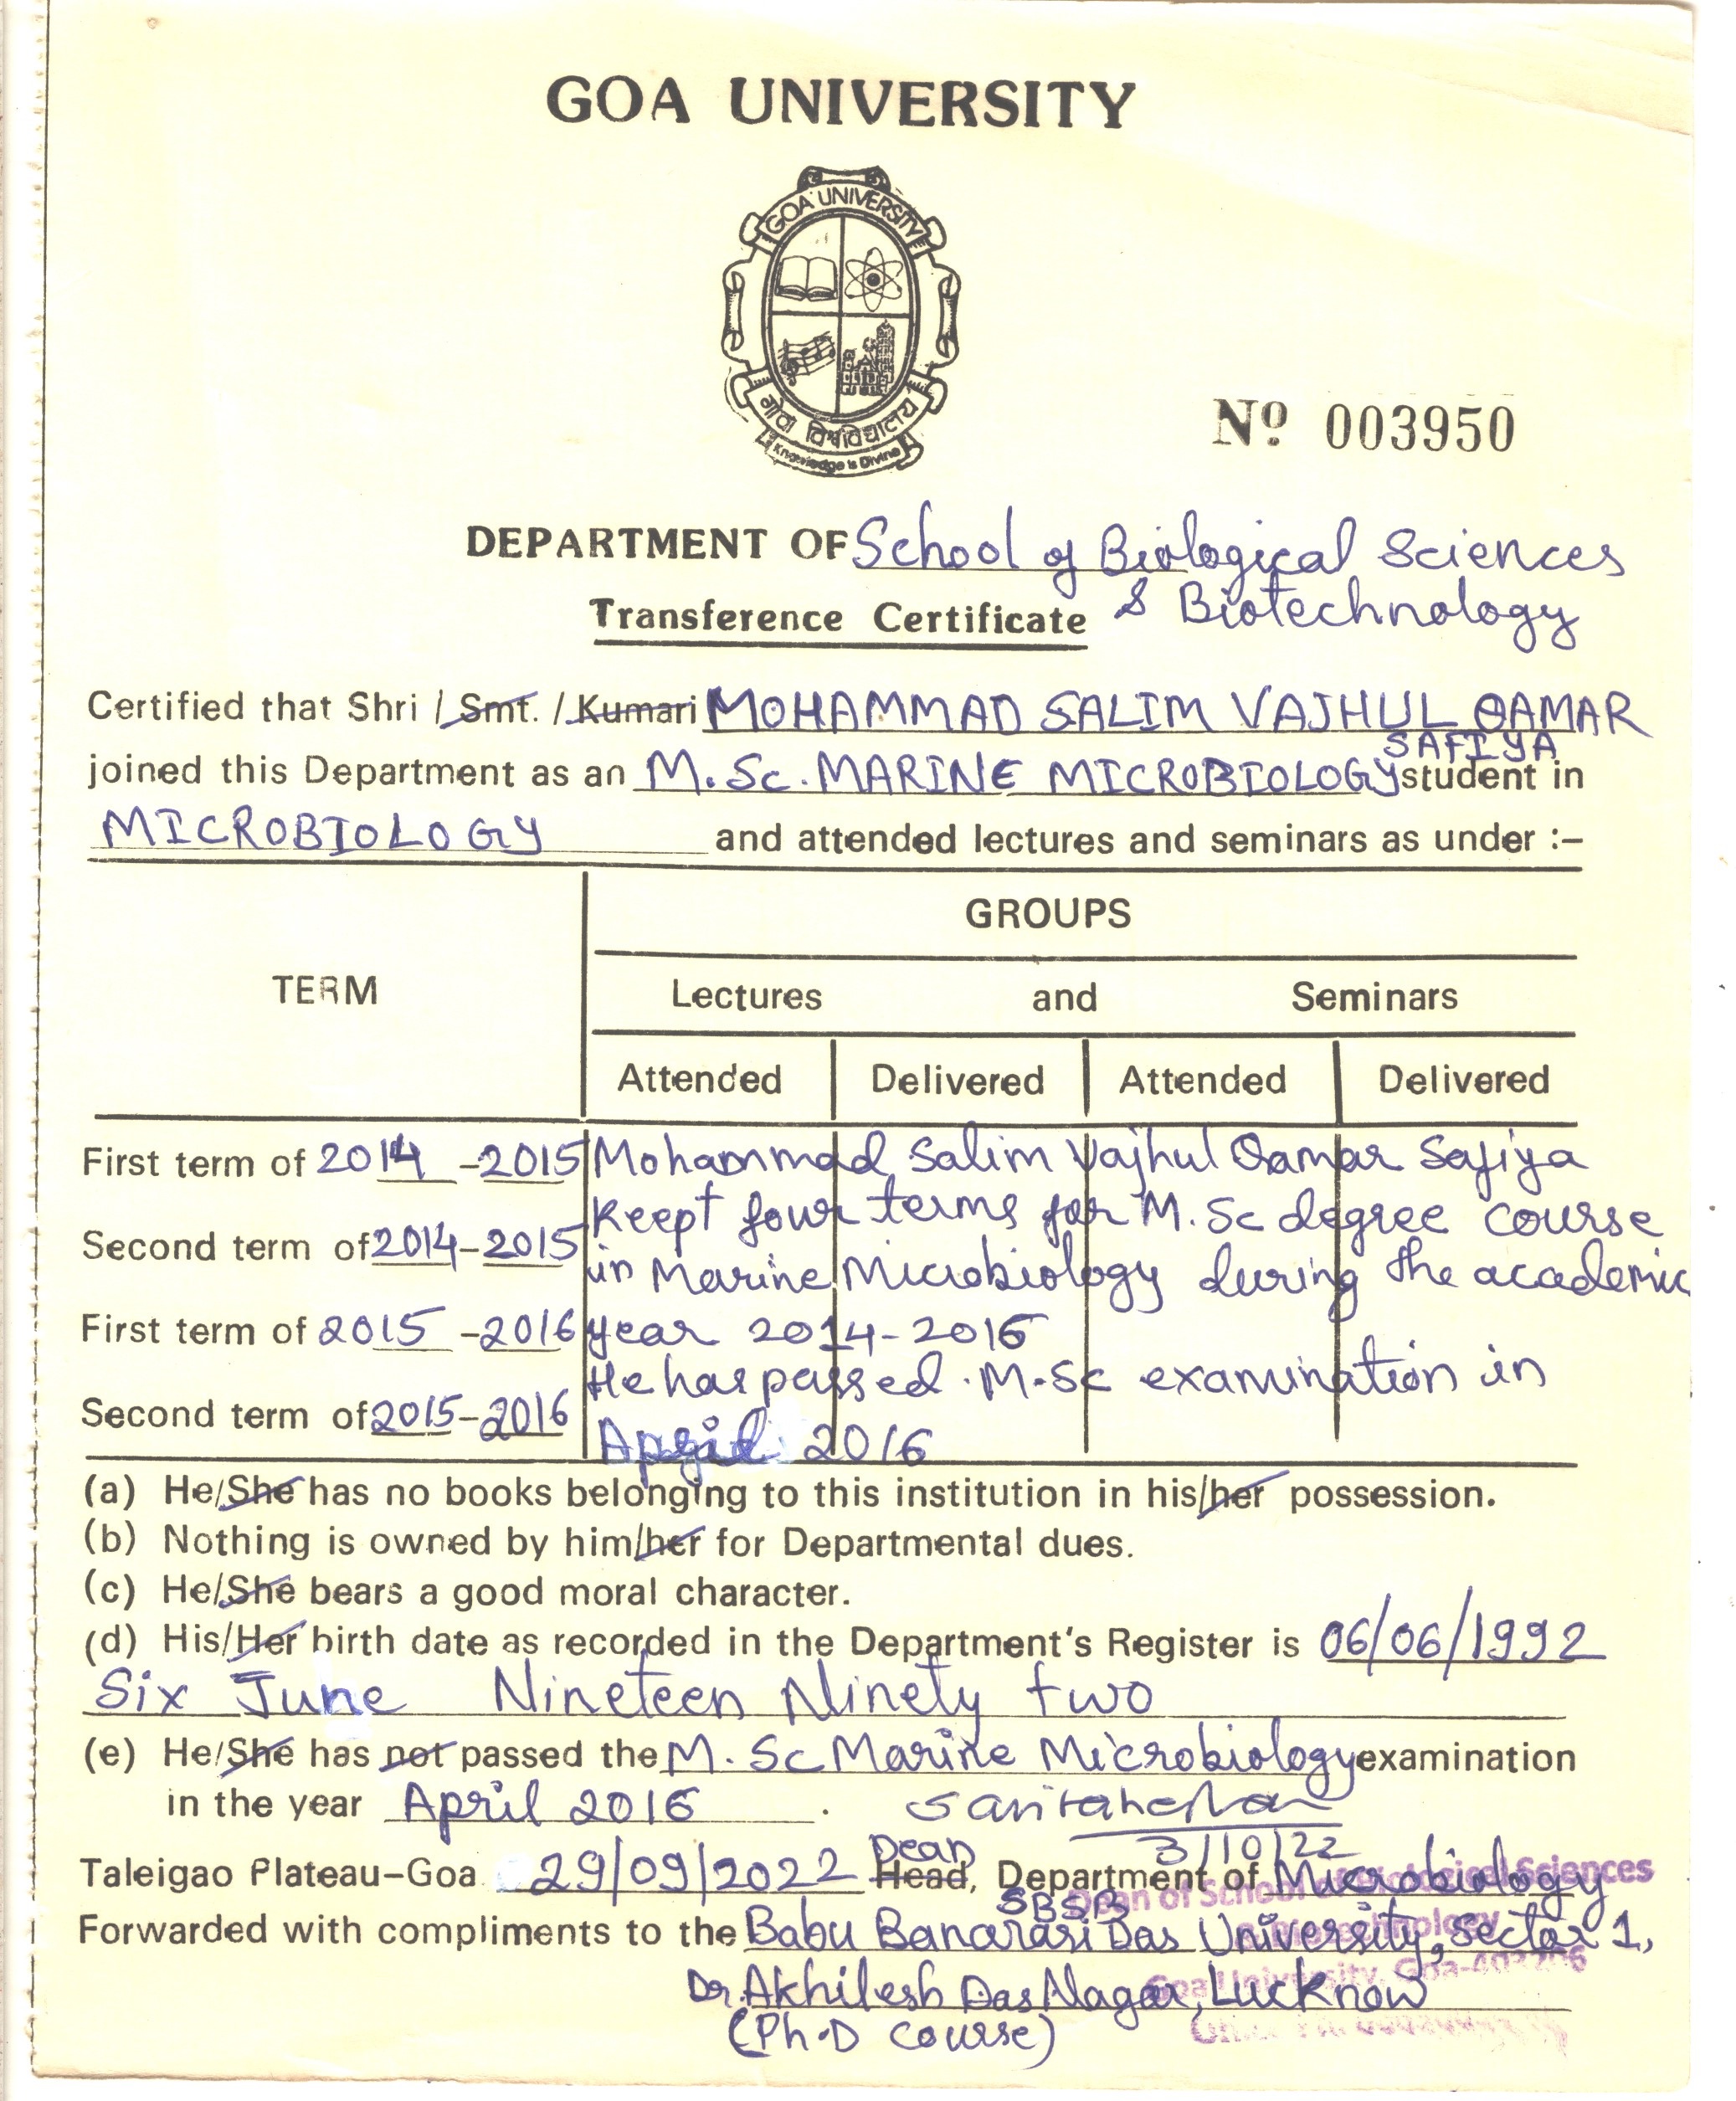 GOA UNIVERSITY
GOA UNIVERSITY
गोंय विश्वविद्यालय
Knowledge is Divine
Nº 003950
DEPARTMENT OF School of Biological Sciences
Transference Certificate & Biotechnology
Certified that Shri / Smt. / Kumari MOHAMMAD SALIM VAJHUL QAMAR
SAFIYA
joined this Department as an M.Sc. MARINE MICROBIOLOGY student in
MICROBIOLOGY and attended lectures and seminars as under :–
GROUPS
TERM
Lectures and Seminars
Attended Delivered Attended Delivered
First term of 2014 - 2015 Mohammad Salim Vajhul Qamar Safiya
Keept four terms for M.Sc degree course
Second term of 2014-2015
in Marine Microbiology during the academic
First term of 2015 - 2016 year 2014-2016
He has passed M.Sc examination in
Second term of 2015-2016
April 2016
(a) He/She has no books belonging to this institution in his/her possession.
(b) Nothing is owned by him/her for Departmental dues.
(c) He/She bears a good moral character.
(d) His/Her birth date as recorded in the Department's Register is 06/06/1992
Six June Nineteen Ninety two
(e) He/She has not passed the M.Sc Marine Microbiology examination
in the year April 2016 .
Dean 3/10/22
Taleigao Plateau–Goa 29/09/2022 Head, Department of Microbiology
SBSB
Dean of School of Biological Sciences
Forwarded with compliments to the Babu Banarasi Das University, Sector 1,
& Biotechnology
Goa University, Goa-403206
Dr. Akhilesh Das Nagar, Lucknow
(Ph.D course)